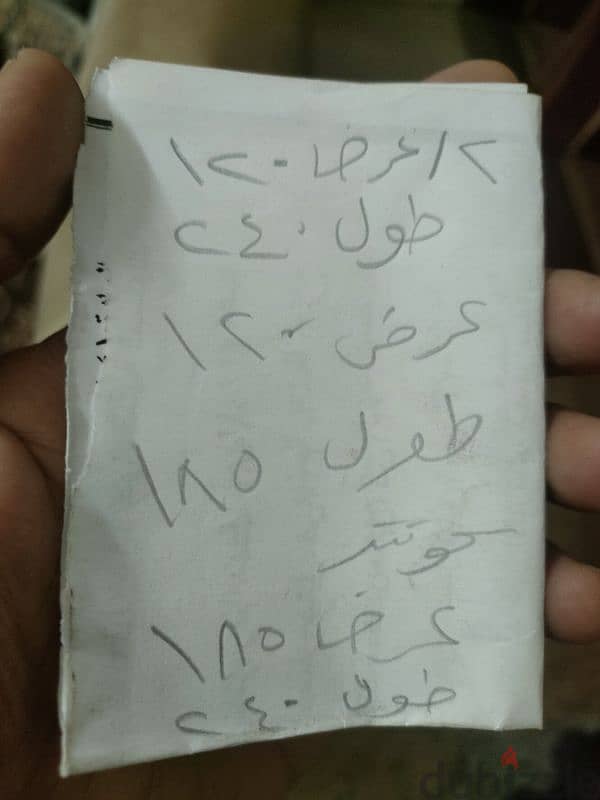 ٢/ عرض ١٢٠
طول ٢٤٠
عرض ١٢٠
طول ١٨٥
كونتر
عرض ١٨٥
طول ٢٤٠
dubizzle